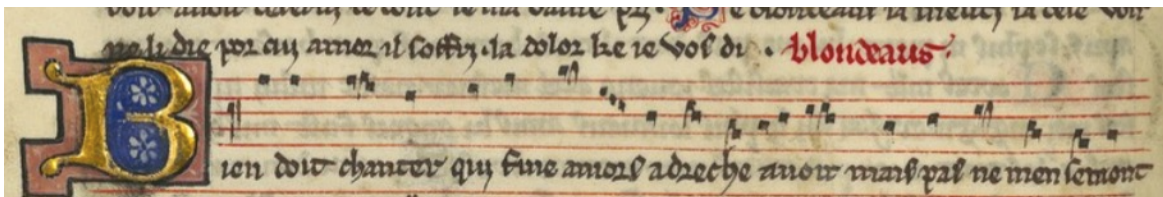 ne li die por cui amor il soffri · la dolor ke ie vos di · blondeaus ·
Bien doit chanter qui fine amors adreche avoir mais pas ne men semont